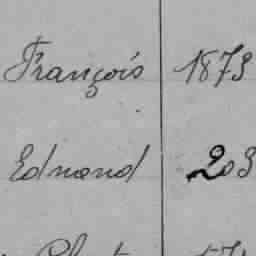 François 1873
Edmond 203